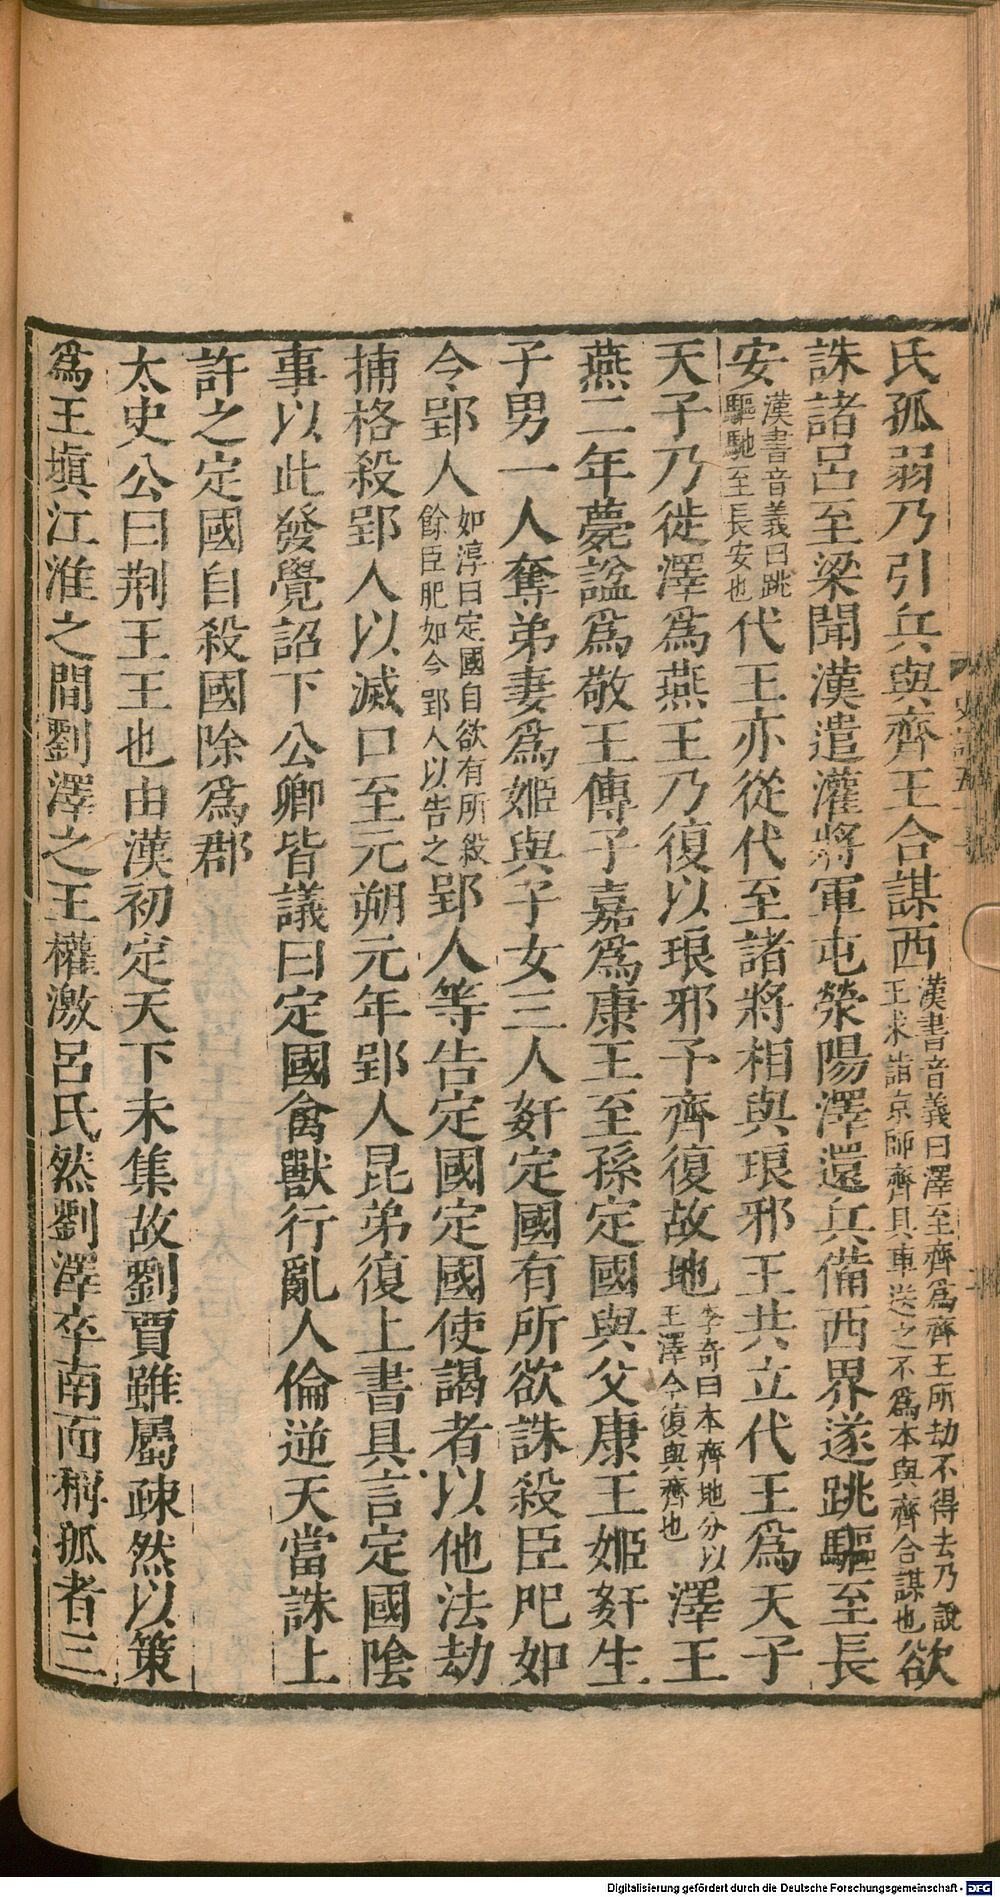 氏孤弱乃引兵與齊王合謀西漢書音義曰澤至齊爲齊王所劫不得去乃說王求詣京師齊具車送之不爲本與齊合謀也欲
誅諸呂至梁聞漢遣灌將軍屯滎陽澤還兵備西界遂跳驅至長
安漢書音義曰跳驅馳至長安也代王亦從代至諸將相與琅邪王共立代王爲天子
天子乃徙澤爲燕王乃復以琅邪予齊復故地李奇曰本齊地分以王澤今復與齊也澤王
燕二年薨諡爲敬王傳子嘉爲康王至孫定國與父康王姬姧生
子男一人奪弟妻爲姬與子女三人姧定國有所欲誅殺臣肥如
令郢人如淳曰定國自欲有所殺餘臣肥如令郢人以告之郢人等告定國定國使謁者以他法劾
捕格殺郢人以滅口至元朔元年郢人昆弟復上書具言定國陰
事以此發覺詔下公卿皆議曰定國禽獸行亂人倫逆天當誅上
許之定國自殺國除爲郡
太史公曰荆王王也由漢初定天下未集故劉賈雖屬疎然以策
爲王塡江淮之間劉澤之王權激呂氏然劉澤卒南面稱孤者三
史記五
Digitalisierung gefördert durch die Deutsche Forschungsgemeinschaft - DFG